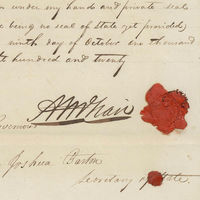 under my hand and private seal
being no seal of State yet provided
ninth day of October one thousand
hundred and twenty
Governor
Joshua Barton
Secretary of State.